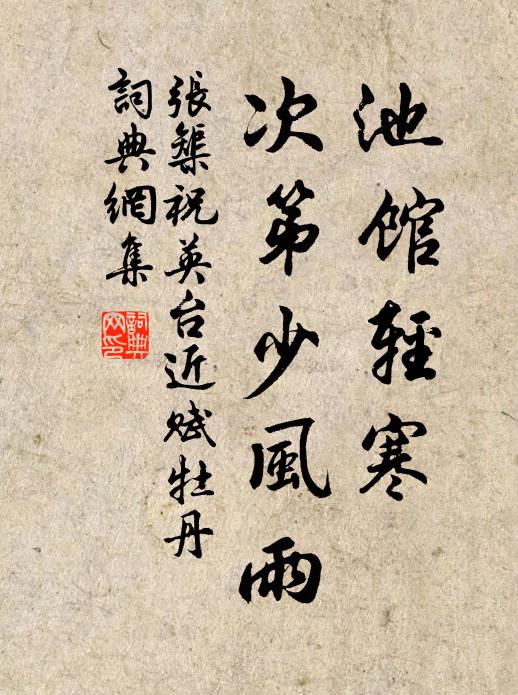 池館輕寒
次第少風雨
張榘祝英台近賦牡丹
詞典網集
詞典網印